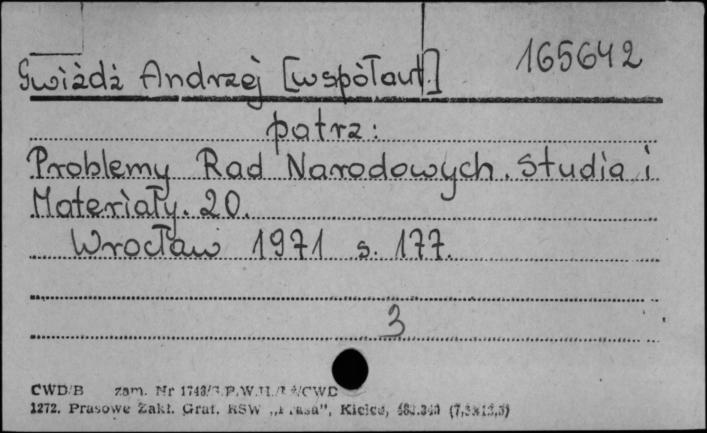 Gwiżdż Andrzej [współaut.] 165642
patrz:
Problemy Rad Narodowych. Studia i
Materiały. 20.
Wrocław 1971 s. 177.
3
CWD/B zam. Nr
1272. Prasowe Zakł. Graf. RSW „Prasa”, Kielce,